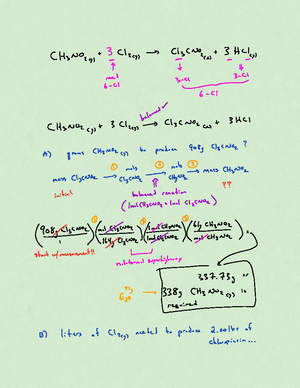 CH₃NO₂(g) + 3 Cl₂(g) → Cl₃CNO₂(g) + 3 HCl(g)
need 6-Cl
3-Cl
3-Cl
6-Cl
balanced
CH₃NO₂(g) + 3 Cl₂(g) → Cl₃CNO₂(g) + 3 HCl
A) grams CH₃NO₂(g) to produce 908g Cl₃CNO₂?
mass Cl₃CNO₂ ① → mols Cl₃CNO₂ ② → mols CH₃NO₂ ③ → mass CH₃NO₂
initial
??
balanced reaction
(1mol CH₃NO₂ = 1mol Cl₃CNO₂)
① ② ③
(908g Cl₃CNO₂ / 1) (mol Cl₃CNO₂ / 164g Cl₃CNO₂) (1mol CH₃NO₂ / 1mol Cl₃CNO₂) (61g CH₃NO₂ / mol CH₃NO₂)
start w/ measurement!!
337.73g
338g CH₃NO₂(g) is
required
sig figs
B) liters of Cl₂(g) needed to produce 2.00lbs of
chloropicrin...